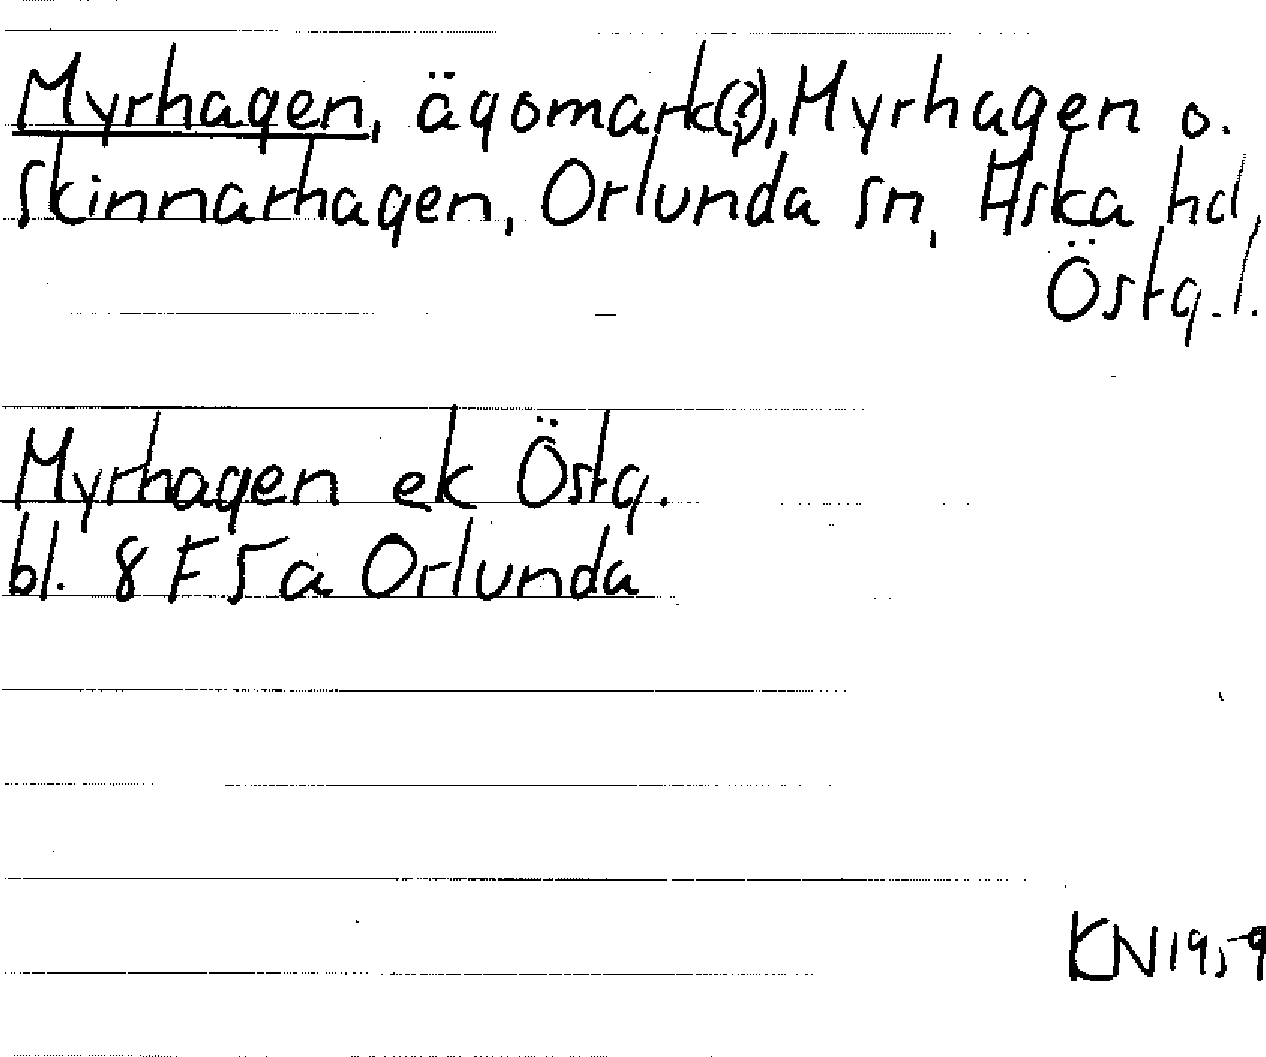 Myrhagen, ägomark(?), Myrhagen o.
Skinnarhagen, Orlunda sn, Aska hd,
Östg.l.
Myrhagen ek Östg.
bl. 8 F 5 a Orlunda
KN 1959